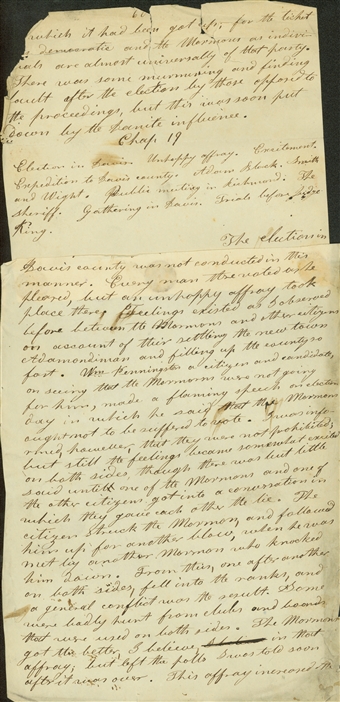 60
which it had been got up; for the ticket
is democratic and the Mormons as individ
uals are almost universally of that party.
There was some murmuring and finding
fault after the election by those opposed to
the proceedings, but this was soon put
down by the Danite influence.
Chap 19
Election in Davis. Unhappy affray. Excitement.
Expedition to Davis county. Adam Black. Smith
and Wight. Public meeting in Richmond. The
sheriff. Gathering in Davis. Trials before Judge
King.
The election in
Davis county was not conducted in this
manner. Every man there voted as he
pleased, but an unhappy affray took
place there. Feelings existed as I observed
before between the Mormons and other citizens
on account of their settling the new town
Adamondiman and filling up the county so
fast. Wm Pennington a citizen and candidate,
on seeing that the Mormons were not going
for him, made a flaming speech on election
day in which he said that the Mormons
ought not to be suffered to vote. I was infor
med, however, that they were not prohibited;
but still the feelings became somewhat excited
on both sides, though there was but little
said until one of the Mormons and one of
the other citizens got into a conversation in
which they gave each other the lie. The
citizen struck the Mormon, and followed
him up for another blow, when he was
met by another Mormon who knocked
him down. From this, one after another
on both sides, fell into the ranks, and
a general conflict was the result. Some
were badly hurt from clubs and boards
that were used on both sides. The Mormons
got the better, I believe, in that
affray; but left the polls I was told soon
after it was over. This affray increased the